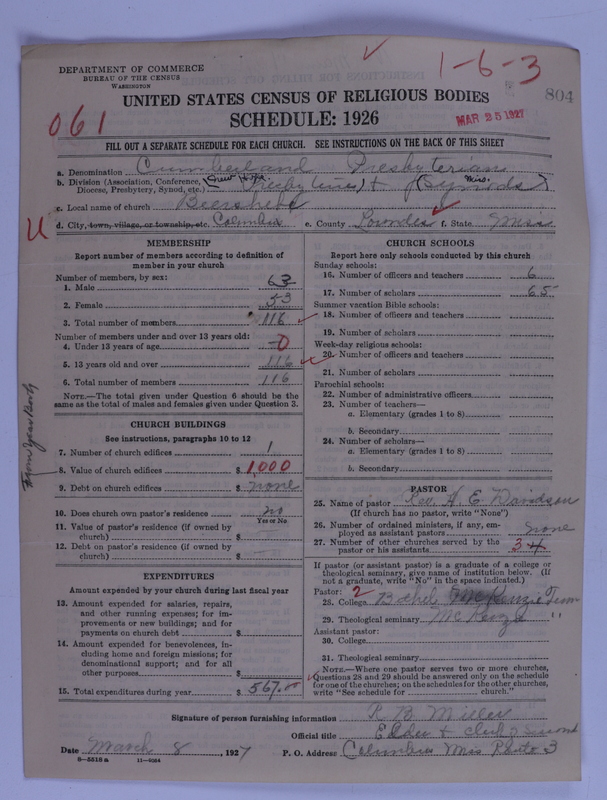 1-6-3
DEPARTMENT OF COMMERCE
BUREAU OF THE CENSUS
WASHINGTON
804
UNITED STATES CENSUS OF RELIGIOUS BODIES
061
SCHEDULE: 1926
MAR 25 1927
FILL OUT A SEPARATE SCHEDULE FOR EACH CHURCH. SEE INSTRUCTIONS ON THE BACK OF THIS SHEET
a. Denomination Cumberland Presbyterian
b. Division (Association, Conference, New Hope Miss.
Diocese, Presbytery, Synod, etc.) Presbytery (Synods)
c. Local name of church Beersheba
U d. City, town, village, or township, etc. Columbus e. County Lowndes f. State Miss
MEMBERSHIP
Report number of members according to definition of
member in your church
Number of members, by sex:
1. Male 63
2. Female 53
3. Total number of members 116
Number of members under and over 13 years old:
4. Under 13 years of age 0
5. 13 years old and over 116
6. Total number of members 116
NOTE.—The total given under Question 6 should be the
same as the total of males and females given under Question 3.
CHURCH BUILDINGS
See instructions, paragraphs 10 to 12
7. Number of church edifices 1
From Year Book
8. Value of church edifices $ 1,000
9. Debt on church edifices $ none
10. Does church own pastor's residence no
Yes or No
11. Value of pastor's residence (if owned by
church) $
12. Debt on pastor's residence (if owned by
church) $
EXPENDITURES
Amount expended by your church during last fiscal year
13. Amount expended for salaries, repairs,
and other running expenses; for im-
provements or new buildings; and for
payments on church debt $
14. Amount expended for benevolences, in-
cluding home and foreign missions; for
denominational support; and for all
other purposes $
15. Total expenditures during year $ 567.00
CHURCH SCHOOLS
Report here only schools conducted by this church
Sunday schools:
16. Number of officers and teachers 6
17. Number of scholars 65
Summer vacation Bible schools:
18. Number of officers and teachers
19. Number of scholars
Week-day religious schools:
20. Number of officers and teachers
21. Number of scholars
Parochial schools:
22. Number of administrative officers
23. Number of teachers—
a. Elementary (grades 1 to 8)
b. Secondary
24. Number of scholars—
a. Elementary (grades 1 to 8)
b. Secondary
PASTOR
25. Name of pastor Rev. A. E. Davidson
(If church has no pastor, write "None")
26. Number of ordained ministers, if any, em-
ployed as assistant pastors none
27. Number of other churches served by the
pastor or his assistants 3 4
If pastor (or assistant pastor) is a graduate of a college or
theological seminary, give name of institution below. (If
not a graduate, write "No" in the space indicated.)
Pastor: 2
28. College Bethel McKenzie Tenn
29. Theological seminary McKenzie "
Assistant pastor:
30. College
31. Theological seminary
NOTE.—Where one pastor serves two or more churches,
Questions 28 and 29 should be answered only on the schedule
for one of the churches; on the schedules for the other churches,
write "See schedule for church."
Signature of person furnishing information R B Miller
Official title Elder & clerk of Session
Date March 8, 1927 P. O. Address Columbus Miss Route 3
8—5518a 11—8064